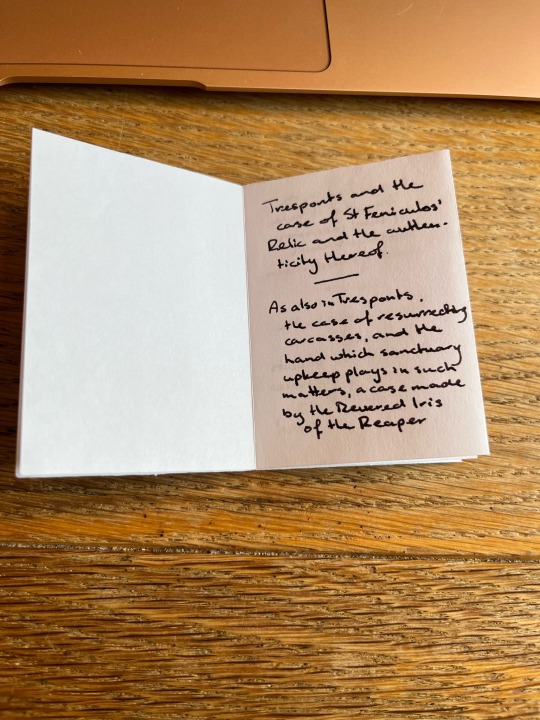 Tresponts and the
case of St Feniculos'
Relic and the authen-
ticity thereof.
As also in Tresponts,
the case of resurrecting
carcasses, and the
hand which sanctuary
upkeep plays in such
matters, a case made
by the Revered Iris
of the Reaper